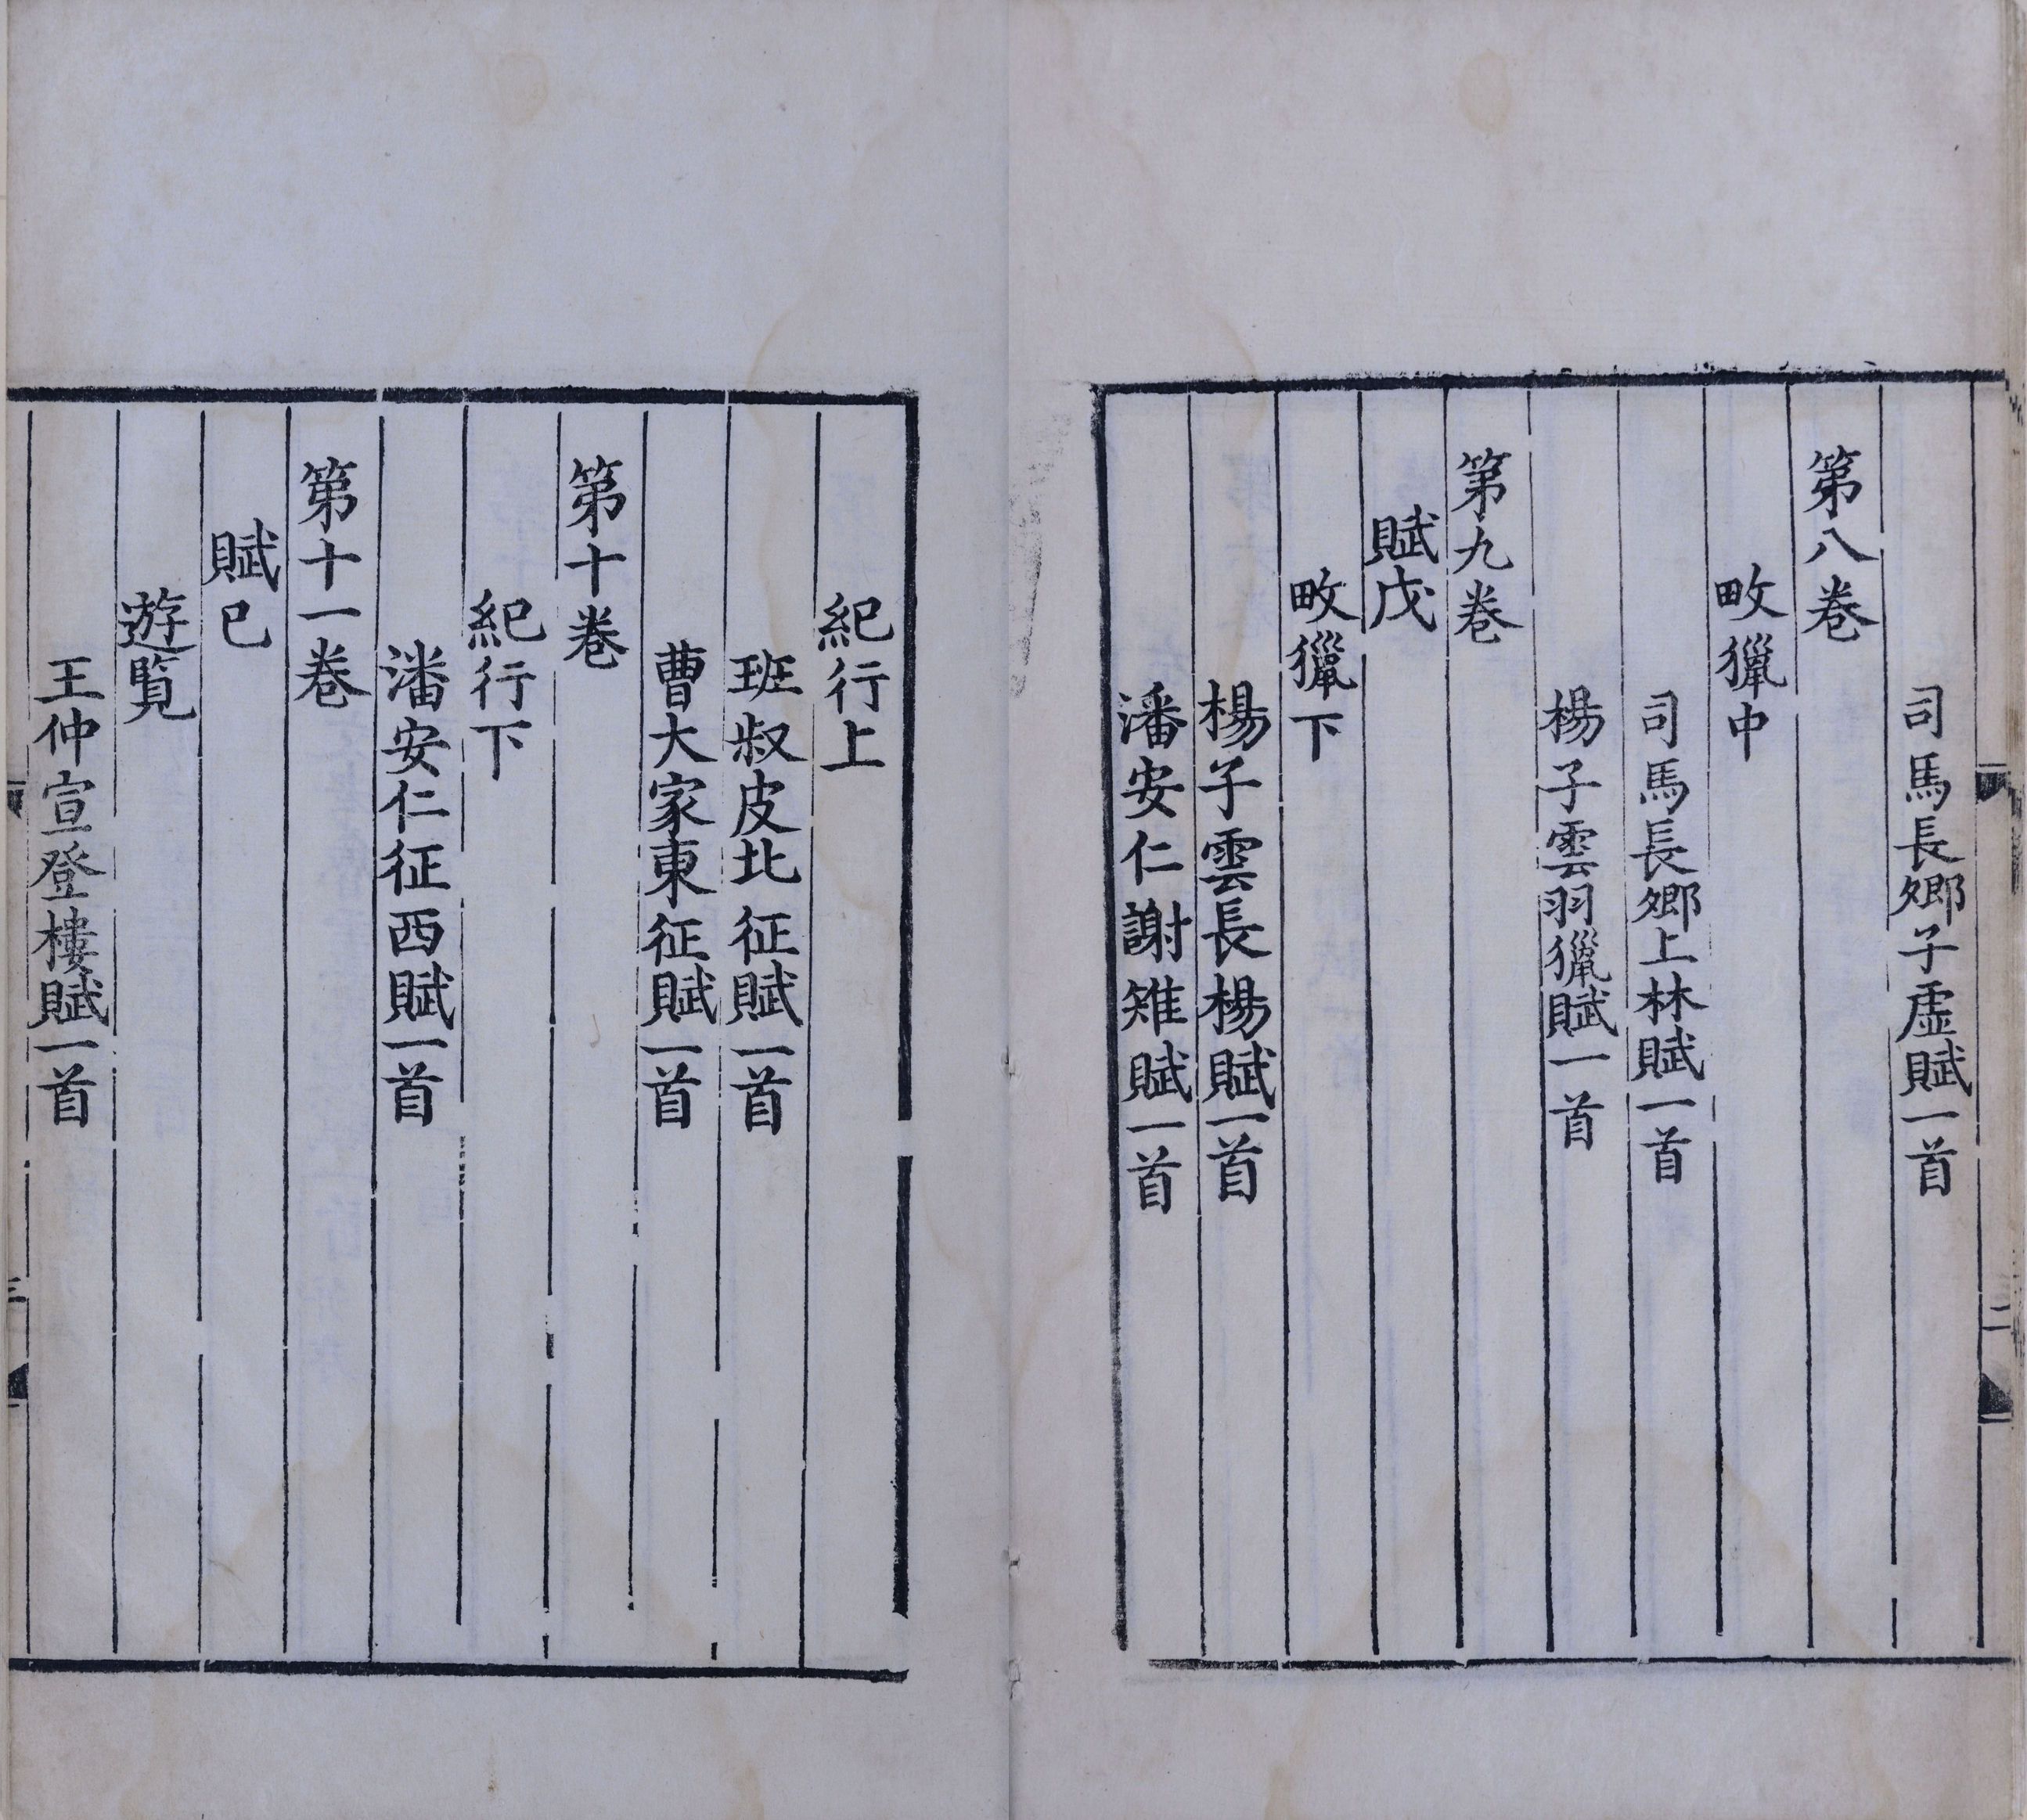 司馬長卿子虛賦一首
第八卷
畋獵中
司馬長卿上林賦一首
楊子雲羽獵賦一首
第九卷
賦戊
畋獵下
楊子雲長楊賦一首
潘安仁謝雉賦一首
紀行上
班叔皮北征賦一首
曹大家東征賦一首
第十卷
紀行下
潘安仁征西賦一首
第十一卷
賦己
遊覧
王仲宣登樓賦一首